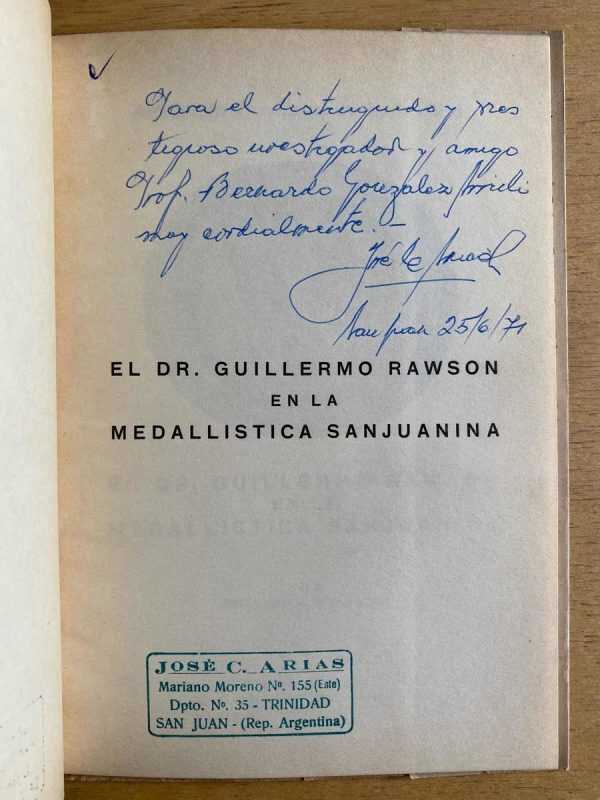 Para el distinguido y pres
tigioso investigador y amigo
Prof. Bernardo Gonzalez Arrili
muy cordialmente. -
José C. Arias
San Juan 25/6/71
EL DR. GUILLERMO RAWSON
EN LA
MEDALLISTICA SANJUANINA
JOSÉ C. ARIAS
Mariano Moreno Nº. 155 (Este)
Dpto. Nº. 35 - TRINIDAD
SAN JUAN - (Rep. Argentina)